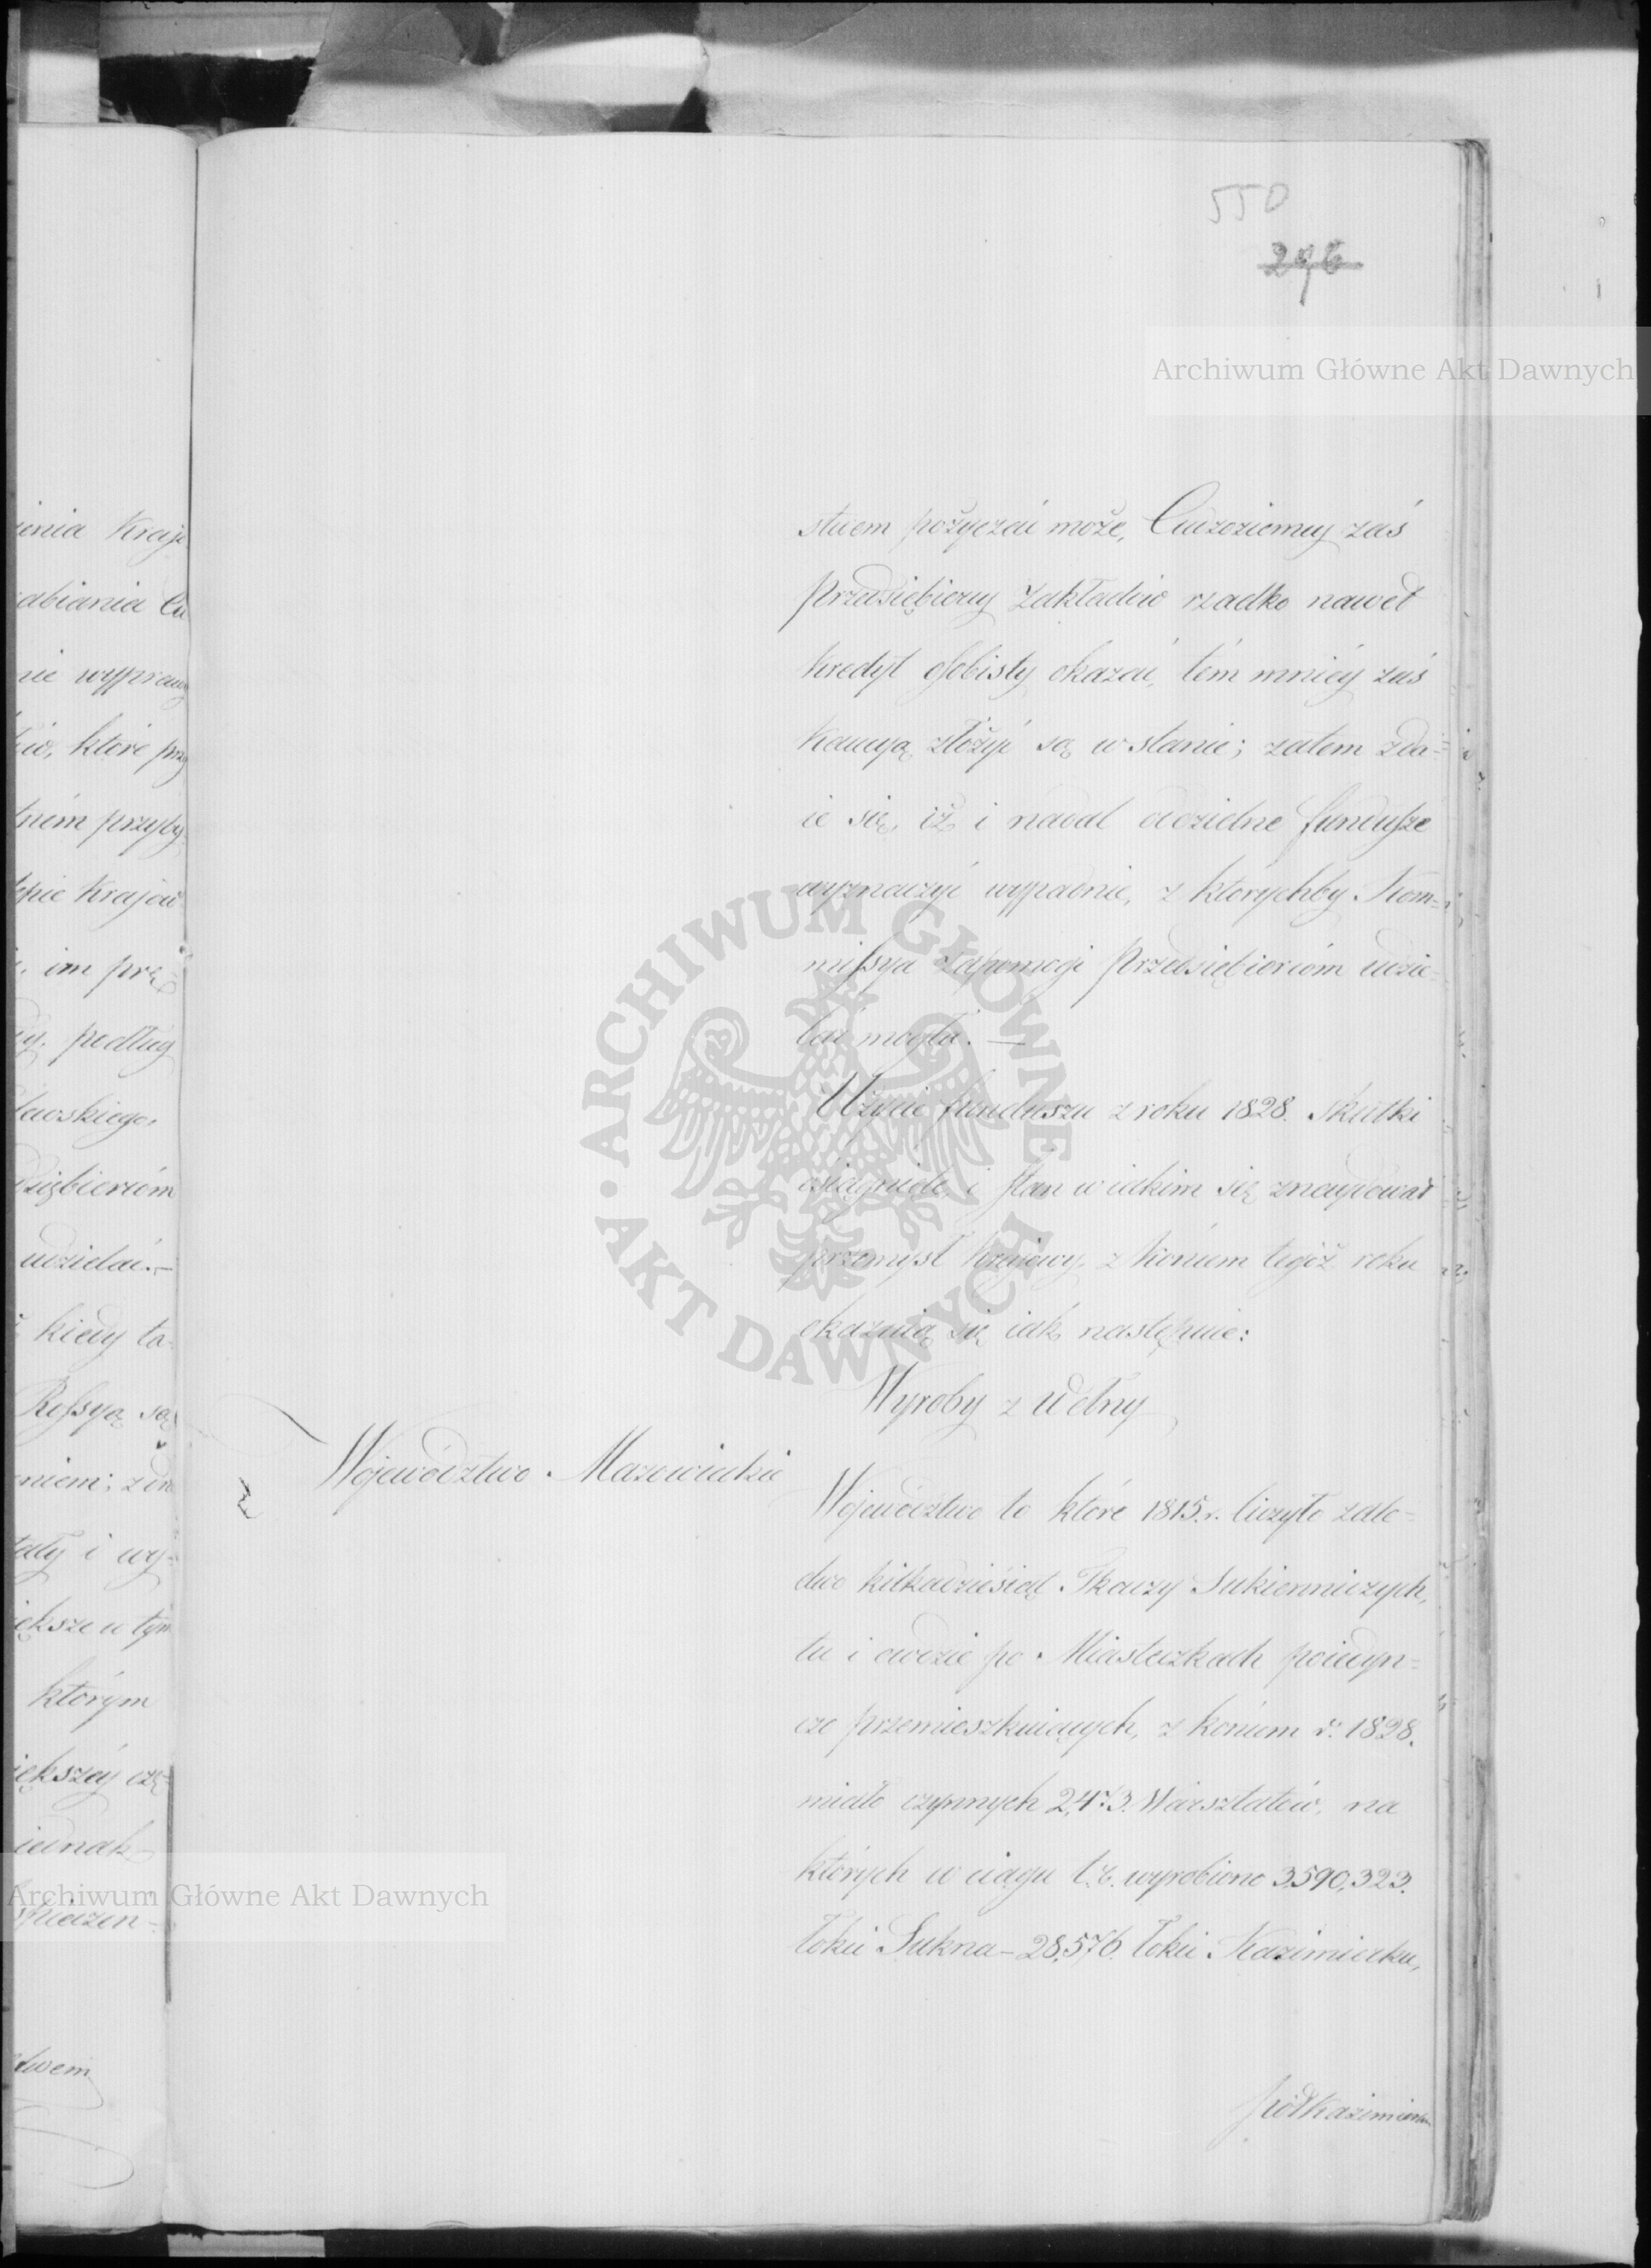 550
296
Archiwum Główne Akt Dawnych
stwem pożyczać może, Cudzoziemcy zaś
Przedsiębiercy Zakładów rzadko nawet
kredyt osobisty okazać, tém mniéy zaś
kaucyą złożyć są w stanie; zatem zda=
ie się, iż i nadal udzielne fundusze
wyznaczyć wypadnie, z którychby Kom=
missya zapomogi Przedsiębiercóm udzie=
lać mogła. —
Użycie funduszu z roku 1828. skutki
osiągnięte, i stan w iakim się znaydował
przemysł kraiowy, z końcem tegóż roku
okazuią się iak następuie:
Wyroby z Wełny
Województwo Mazowieckie
Województwo to które 1815. r. liczyło zale=
dwo kilkadziesiąt Tkaczy Sukienniczych,
tu i owdzie po Miasteczkach poiedyn=
czo przemieszkuiących, z końcem r. 1828.
miało czynnych 2,473. Warsztatów, na
których w ciągu t. r. wyrobiono 3,590,323.
łokci Sukna – 28,576. łokci Kazimirku,
półkazimirku
ARCHIWUM GŁÓWNE
AKT DAWNYCH
ienia Kraio
abiania Cu
nie wyprawy
ów, które przy
tném przyby
epie Kraiów
, im prę=
podług
lewskiego,
dsiębiercóm
udzielać. –
kiedy ta=
Rossyą są
niem; z dru
ały i wy=
iększe w tym
którym
iększéy czę=
iednak
Archiwum Główne Akt Dawnych
spieczen=
stwem